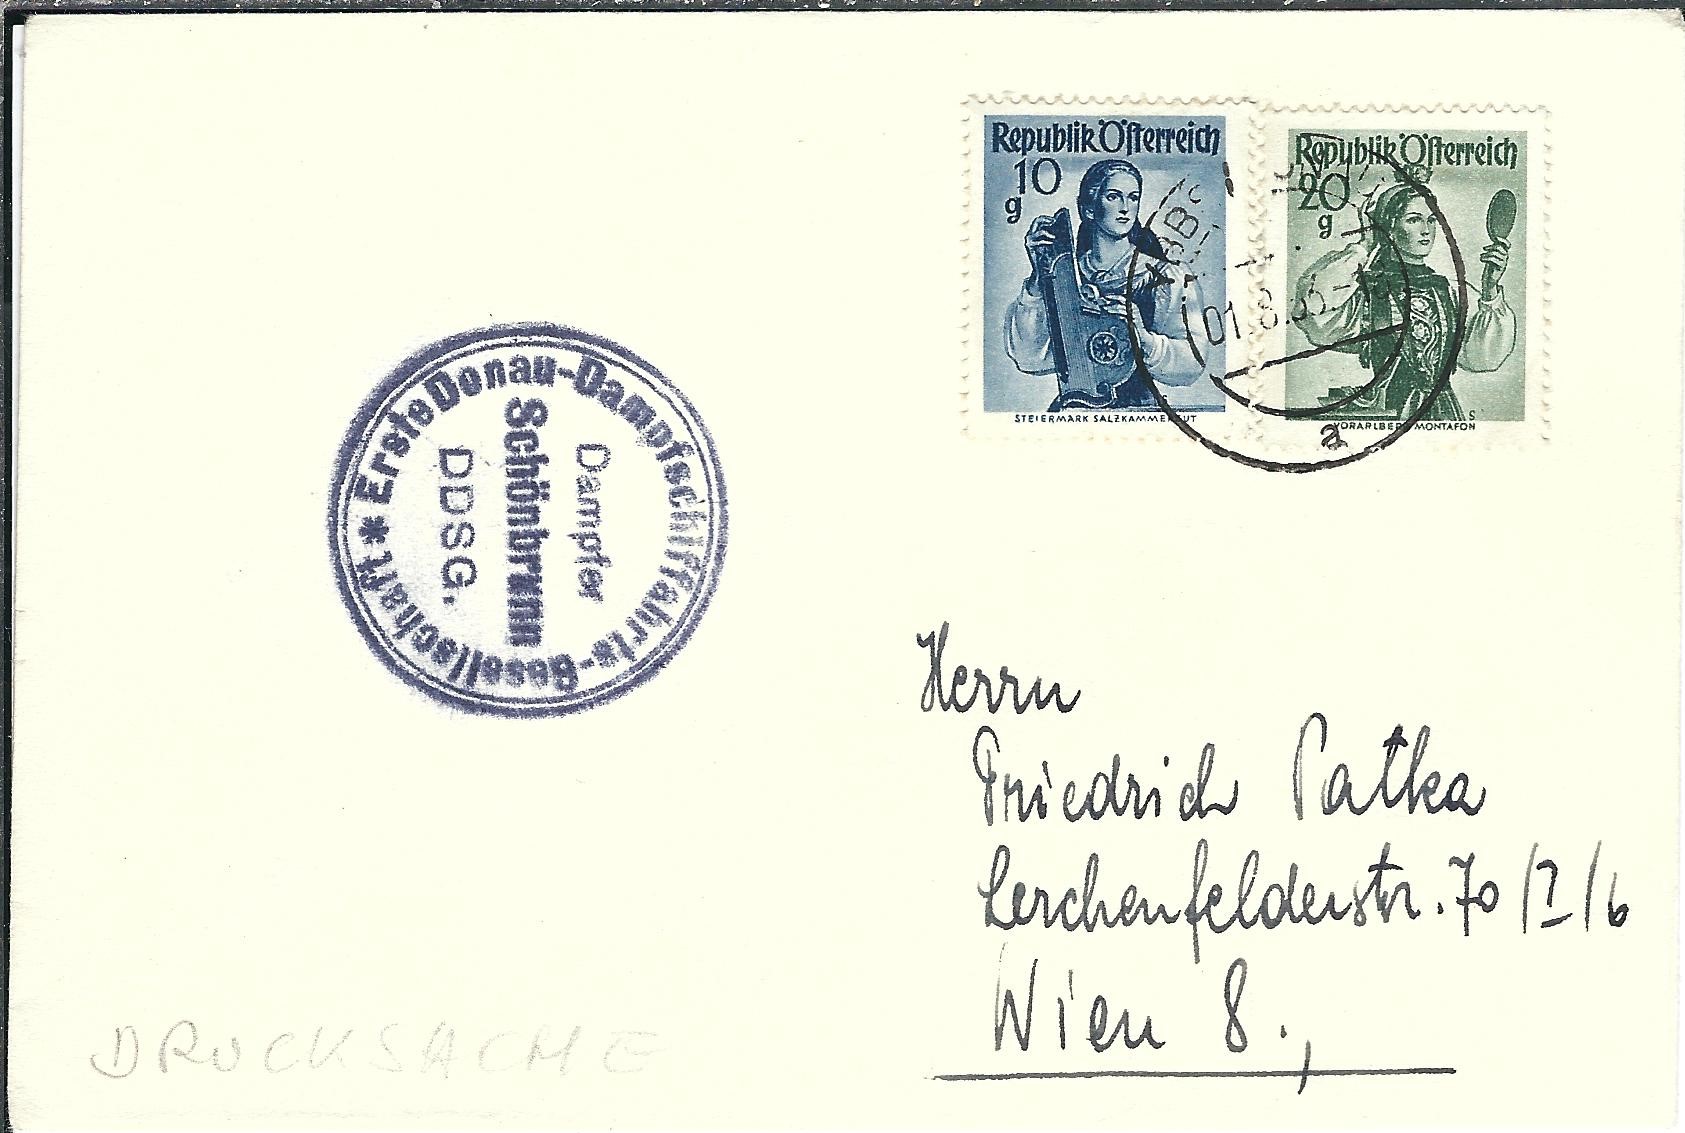 Republik Österreich
10
g
STEIERMARK SALZKAMMERGUT
Republik Österreich
20
g
VORARLBERG MONTAFON
YBBS
a
* Erste Donau-Dampfschiffahrts-Gesellschaft
Dampfer
Schönbrunn
DDSG.
Herrn
Friedrich Patka
Lerchenfelderstr. 70/I/6
Wien 8.,
DRUCKSACHE